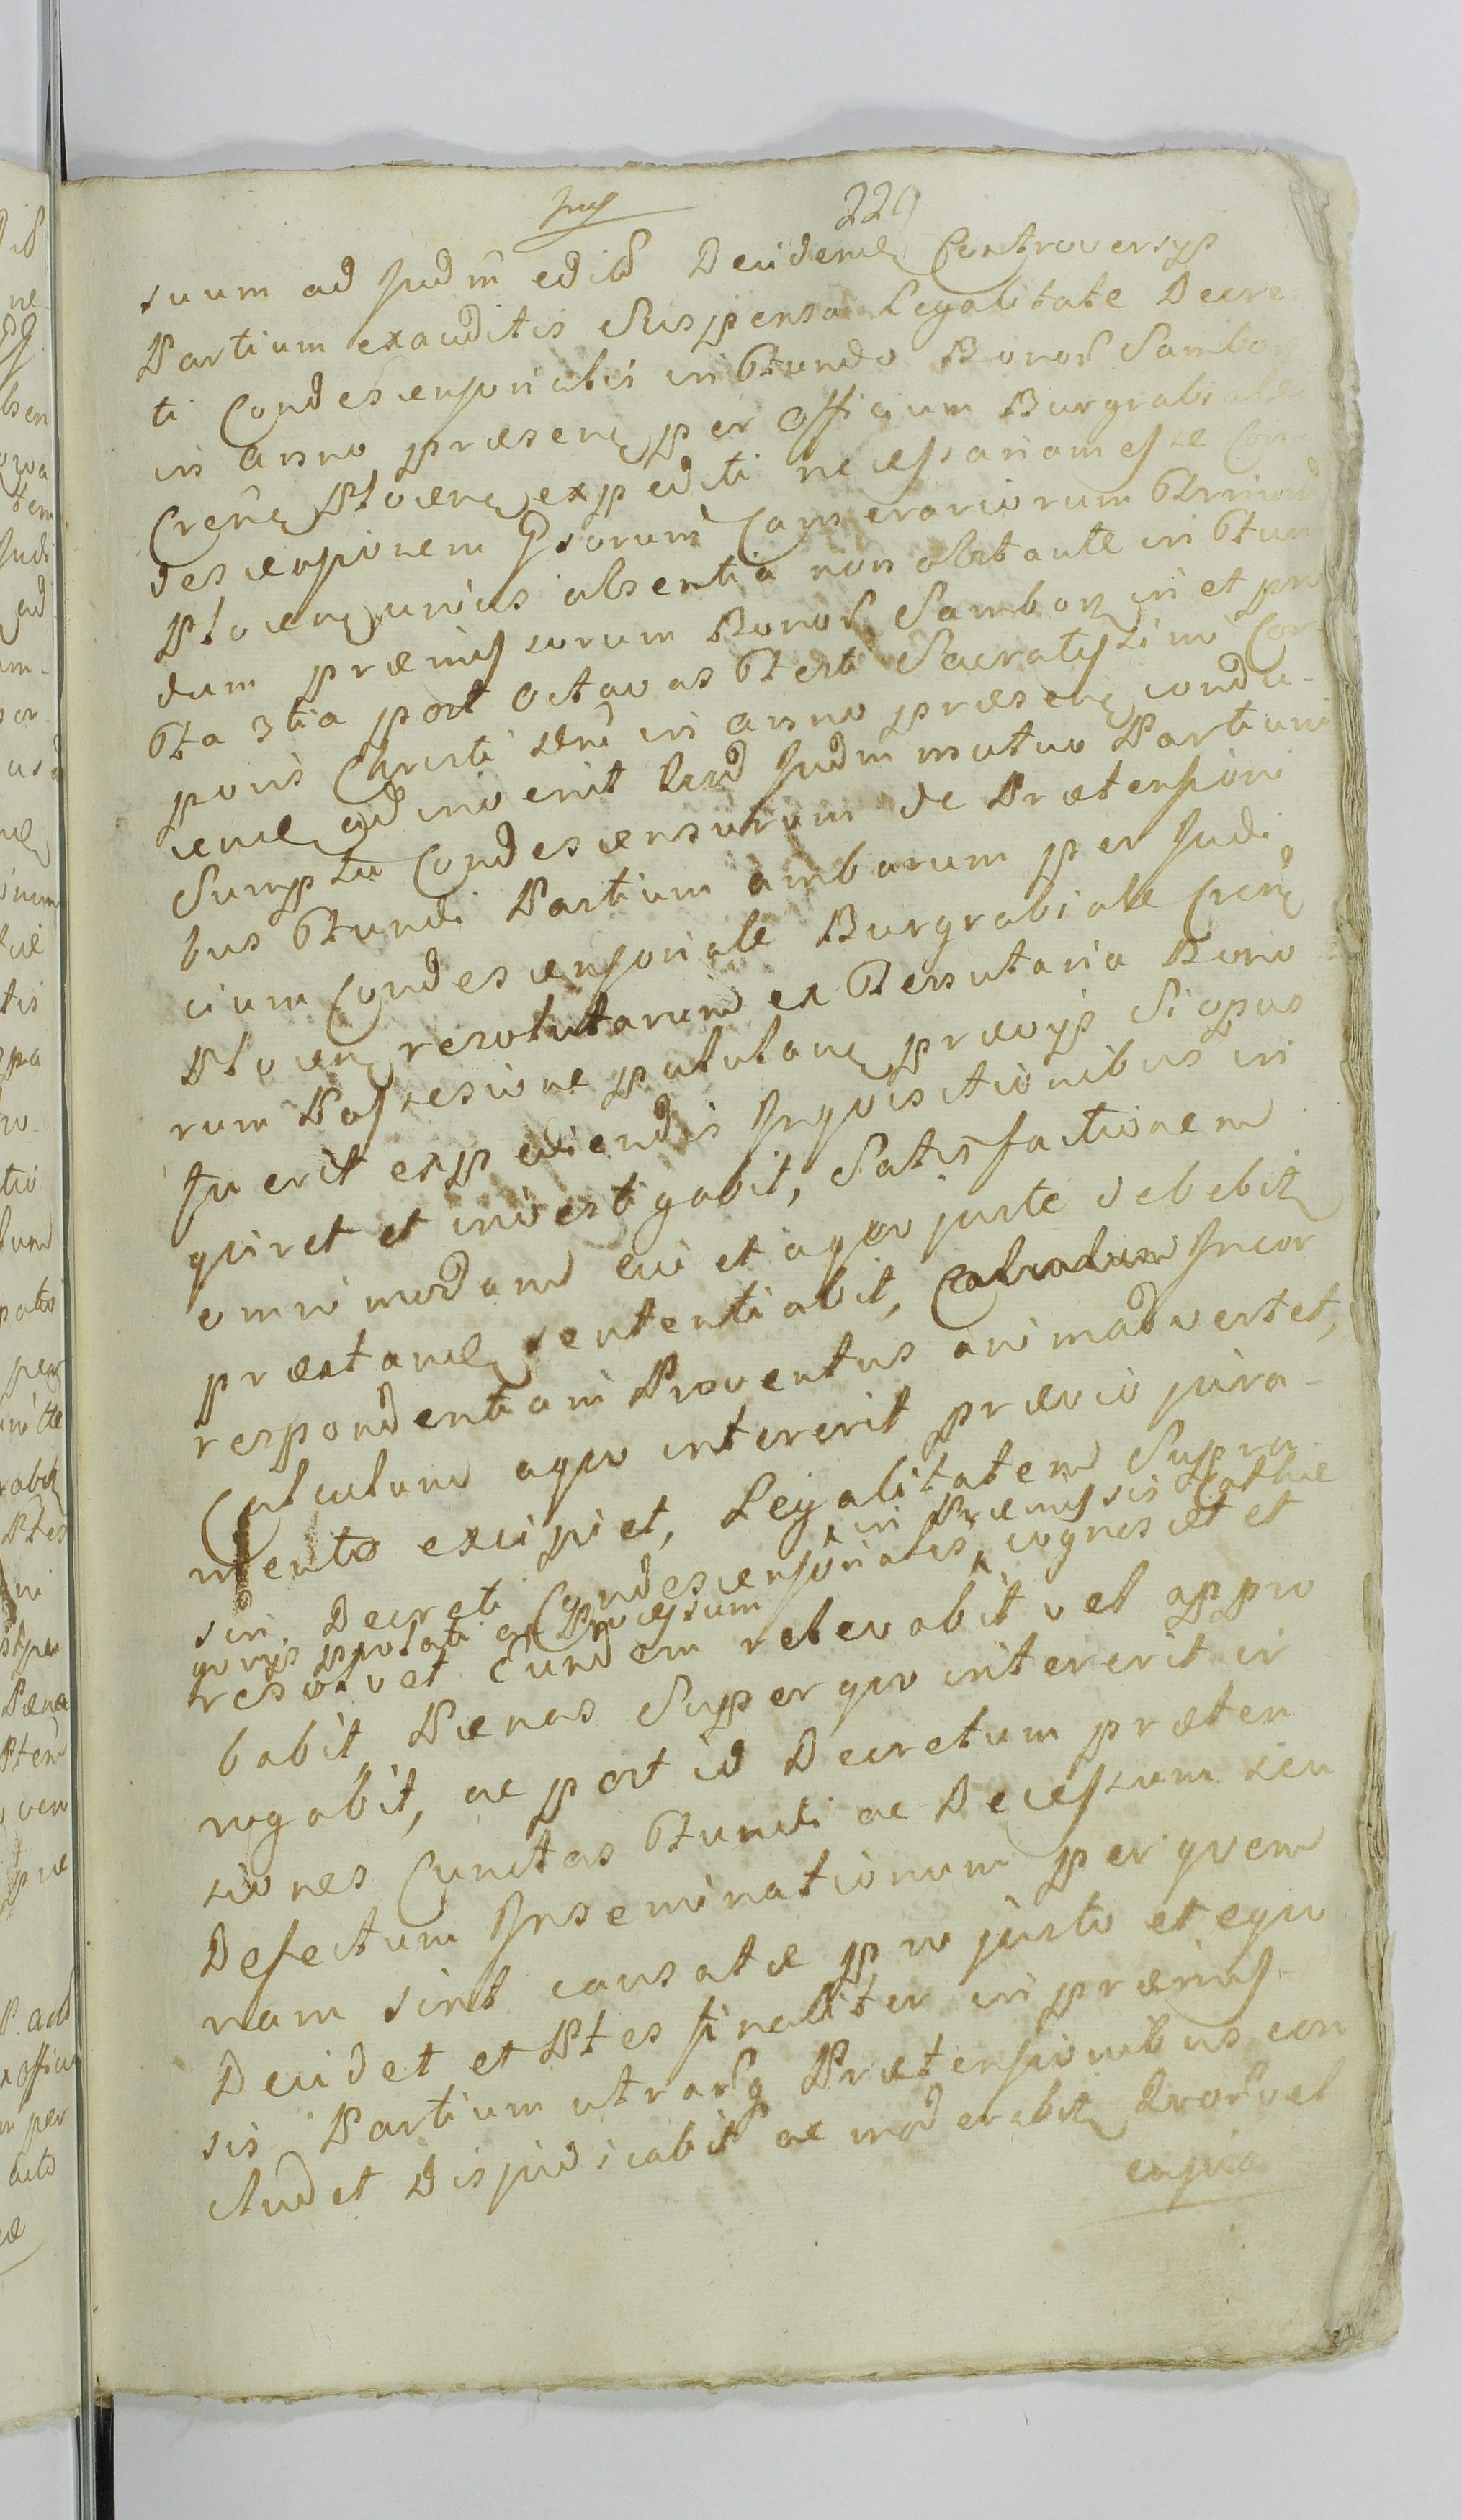 229
suum ad Judm edità Decidendę Controversys
Partium exauditis Suspensa Legalitate Decre
ti Condescensorialis in Fundo Bonor Samborz
in anno præsenę per Officium Burgrabiale
Crenę Plocenę expediti necessariam esse Con
descensionem Gsorum Camerariorum Trrium
Plocenę unius absentia non obstante in Fun
dum præmissorum Bonor Samborz in et pro
Fa 3tia post Octavas Festi Sacratissimi Cor
poris Christi in anno præsenę condu
cendę adinvenit Judm mutuo Partium
Sumptu Condescensurum de Prætensioni
bus Fundi Partium ambarum per Judi
cium Condescensoriale Burgrabiale Crenę
Plocenę resolutarum ex Tenutaria Bono
rum Possessione pullulanę prævys Si opus
fuerit expediendis Inqvisitionibus in
qviret et investigabit, Satisfactionem
omnimodam cui et a qvo juste debebitę
præstandę sententiabit, Incor
respondentiam Proventus animadvertet,
Calculum a qvo intererit prævio jura-
mento excipiet, Legalitatem Supra
sin Decreti Condescensorialis, in Præmissis cognoscet et
Processum
resolvet Eundem relevabit vel appro
babit Pænas Super qvo intererit ir
rogabit, ac post id Decretum præten
siones Cunctas Fundi ac Decessum seu
Defectum Inseminationum per qvem
nam sint causatæ pro justo et eqvo
Decidet et Ptes finaliter in præmis-
sis Partium utrarq Prætensionibus con
cludet Disjudicabit ac moderabitę vel